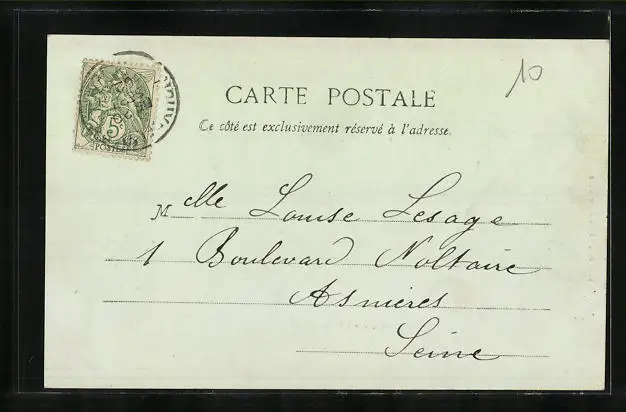 10
CARTE POSTALE
Ce côté est exclusivement réservé à l'adresse.
5c
POSTES
Mlle Louise Lesage
1 Boulevard Voltaire
Asnières
Seine